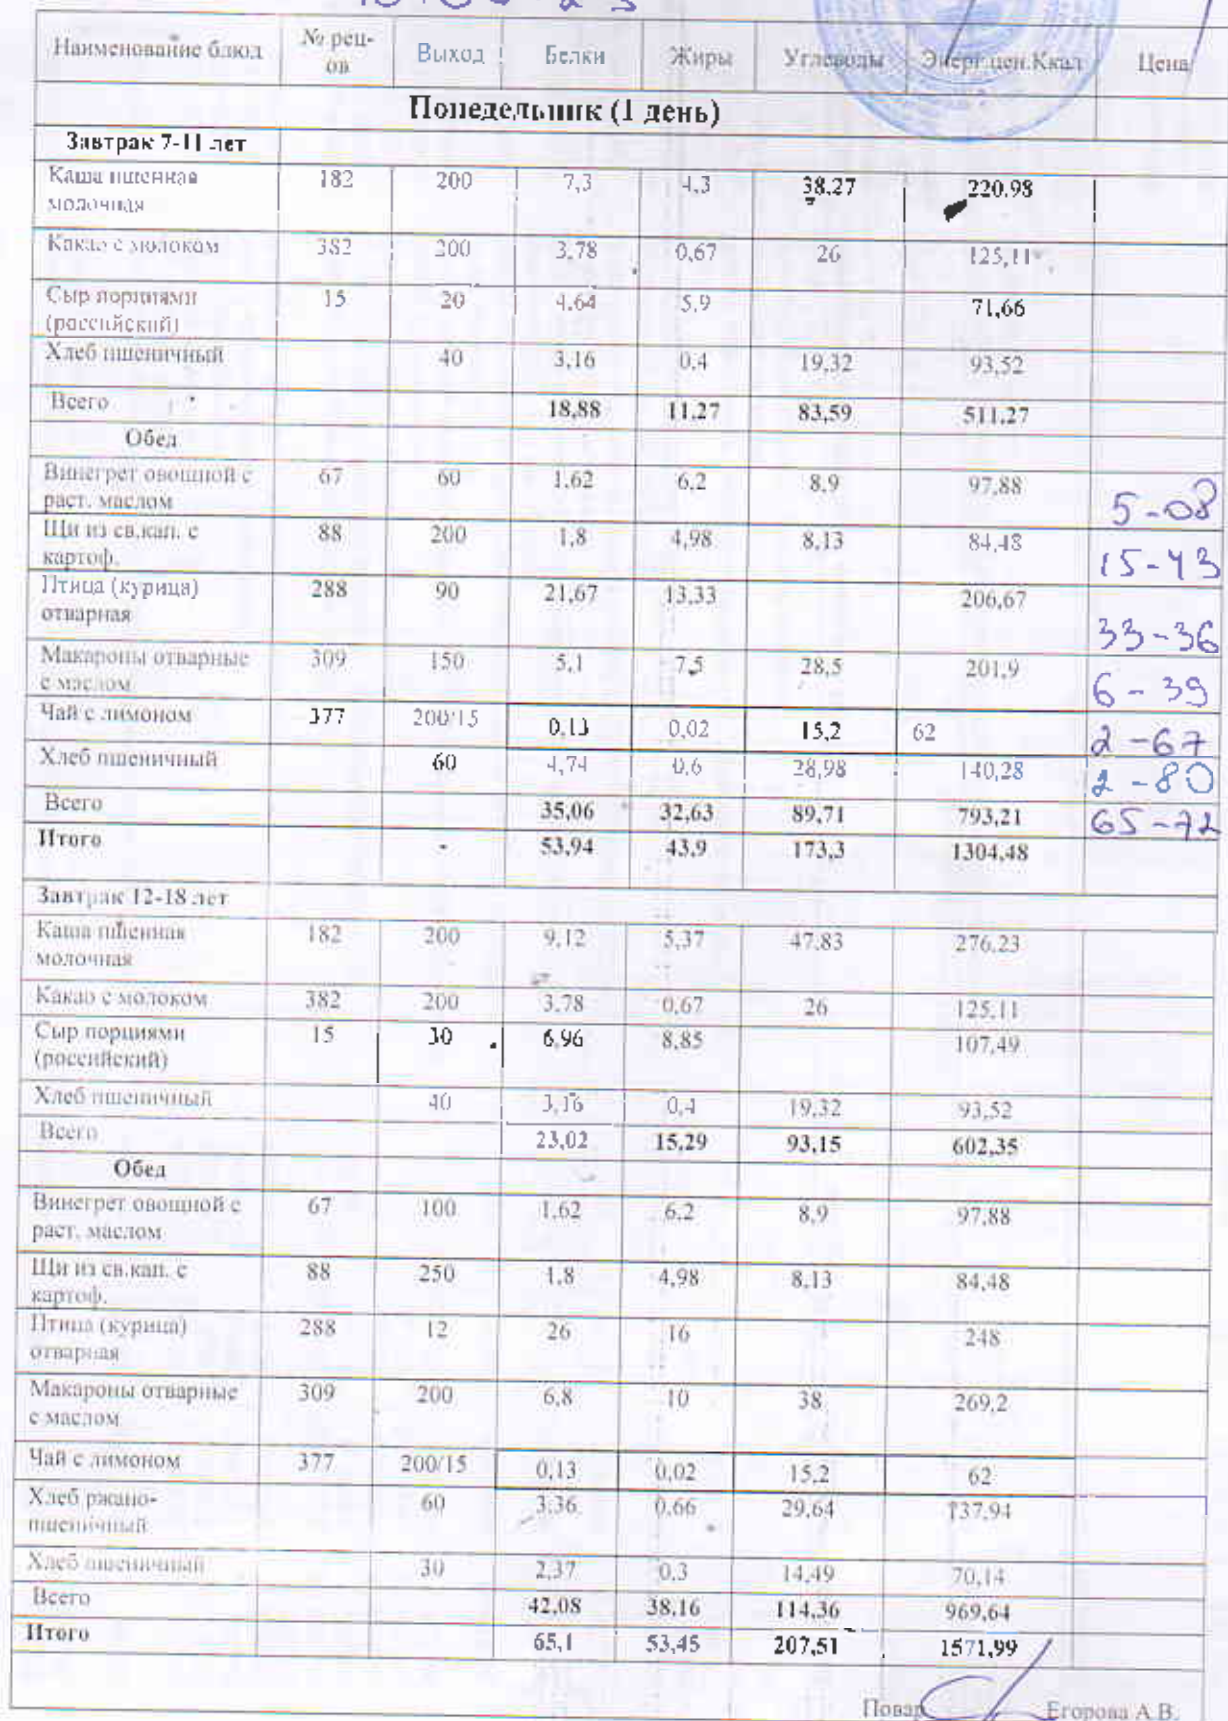 Наименование блюд № рец-ов Выход Белки Жиры Углеводы Энерг.цен.Ккал Цена
Понедельник (1 день)
Завтрак 7-11 лет
Каша пшенная молочная 182 200 7,3 4,3 38,27 220,98
Какао с молоком 382 200 3,78 0,67 26 125,11
Сыр порциями (российский) 15 20 4,64 5,9 71,66
Хлеб пшеничный 40 3,16 0,4 19,32 93,52
Всего 18,88 11,27 83,59 511,27
Обед
Винегрет овощной с раст. маслом 67 60 1,62 6,2 8,9 97,88 5-08
Щи из св.кап. с картоф. 88 200 1,8 4,98 8,13 84,48 15-43
Птица (курица) отварная 288 90 21,67 13,33 206,67 33-36
Макароны отварные с маслом 309 150 5,1 7,5 28,5 201,9 6-39
Чай с лимоном 377 200/15 0,13 0,02 15,2 62 2-67
Хлеб пшеничный 60 4,74 0,6 28,98 140,28 2-80
Всего 35,06 32,63 89,71 793,21 65-72
Итого 53,94 43,9 173,3 1304,48
Завтрак 12-18 лет
Каша пшенная молочная 182 200 9,12 5,37 47,83 276,23
Какао с молоком 382 200 3,78 0,67 26 125,11
Сыр порциями (российский) 15 30 6,96 8,85 107,49
Хлеб пшеничный 40 3,16 0,4 19,32 93,52
Всего 23,02 15,29 93,15 602,35
Обед
Винегрет овощной с раст. маслом 67 100 1,62 6,2 8,9 97,88
Щи из св.кап. с картоф. 88 250 1,8 4,98 8,13 84,48
Птица (курица) отварная 288 12 26 16 248
Макароны отварные с маслом 309 200 6,8 10 38 269,2
Чай с лимоном 377 200/15 0,13 0,02 15,2 62
Хлеб ржано-пшеничный 60 3,36 0,66 29,64 137,94
Хлеб пшеничный 30 2,37 0,3 14,49 70,14
Всего 42,08 38,16 114,36 969,64
Итого 65,1 53,45 207,51 1571,99
Повар Егорова А.В.